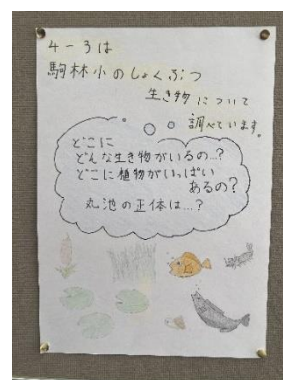 4-3は
駒林小のしょくぶつ
生き物について
調べています。
どこに
どんな生き物がいるの…?
どこに植物がいっぱい
あるの?
丸池の正体は…?